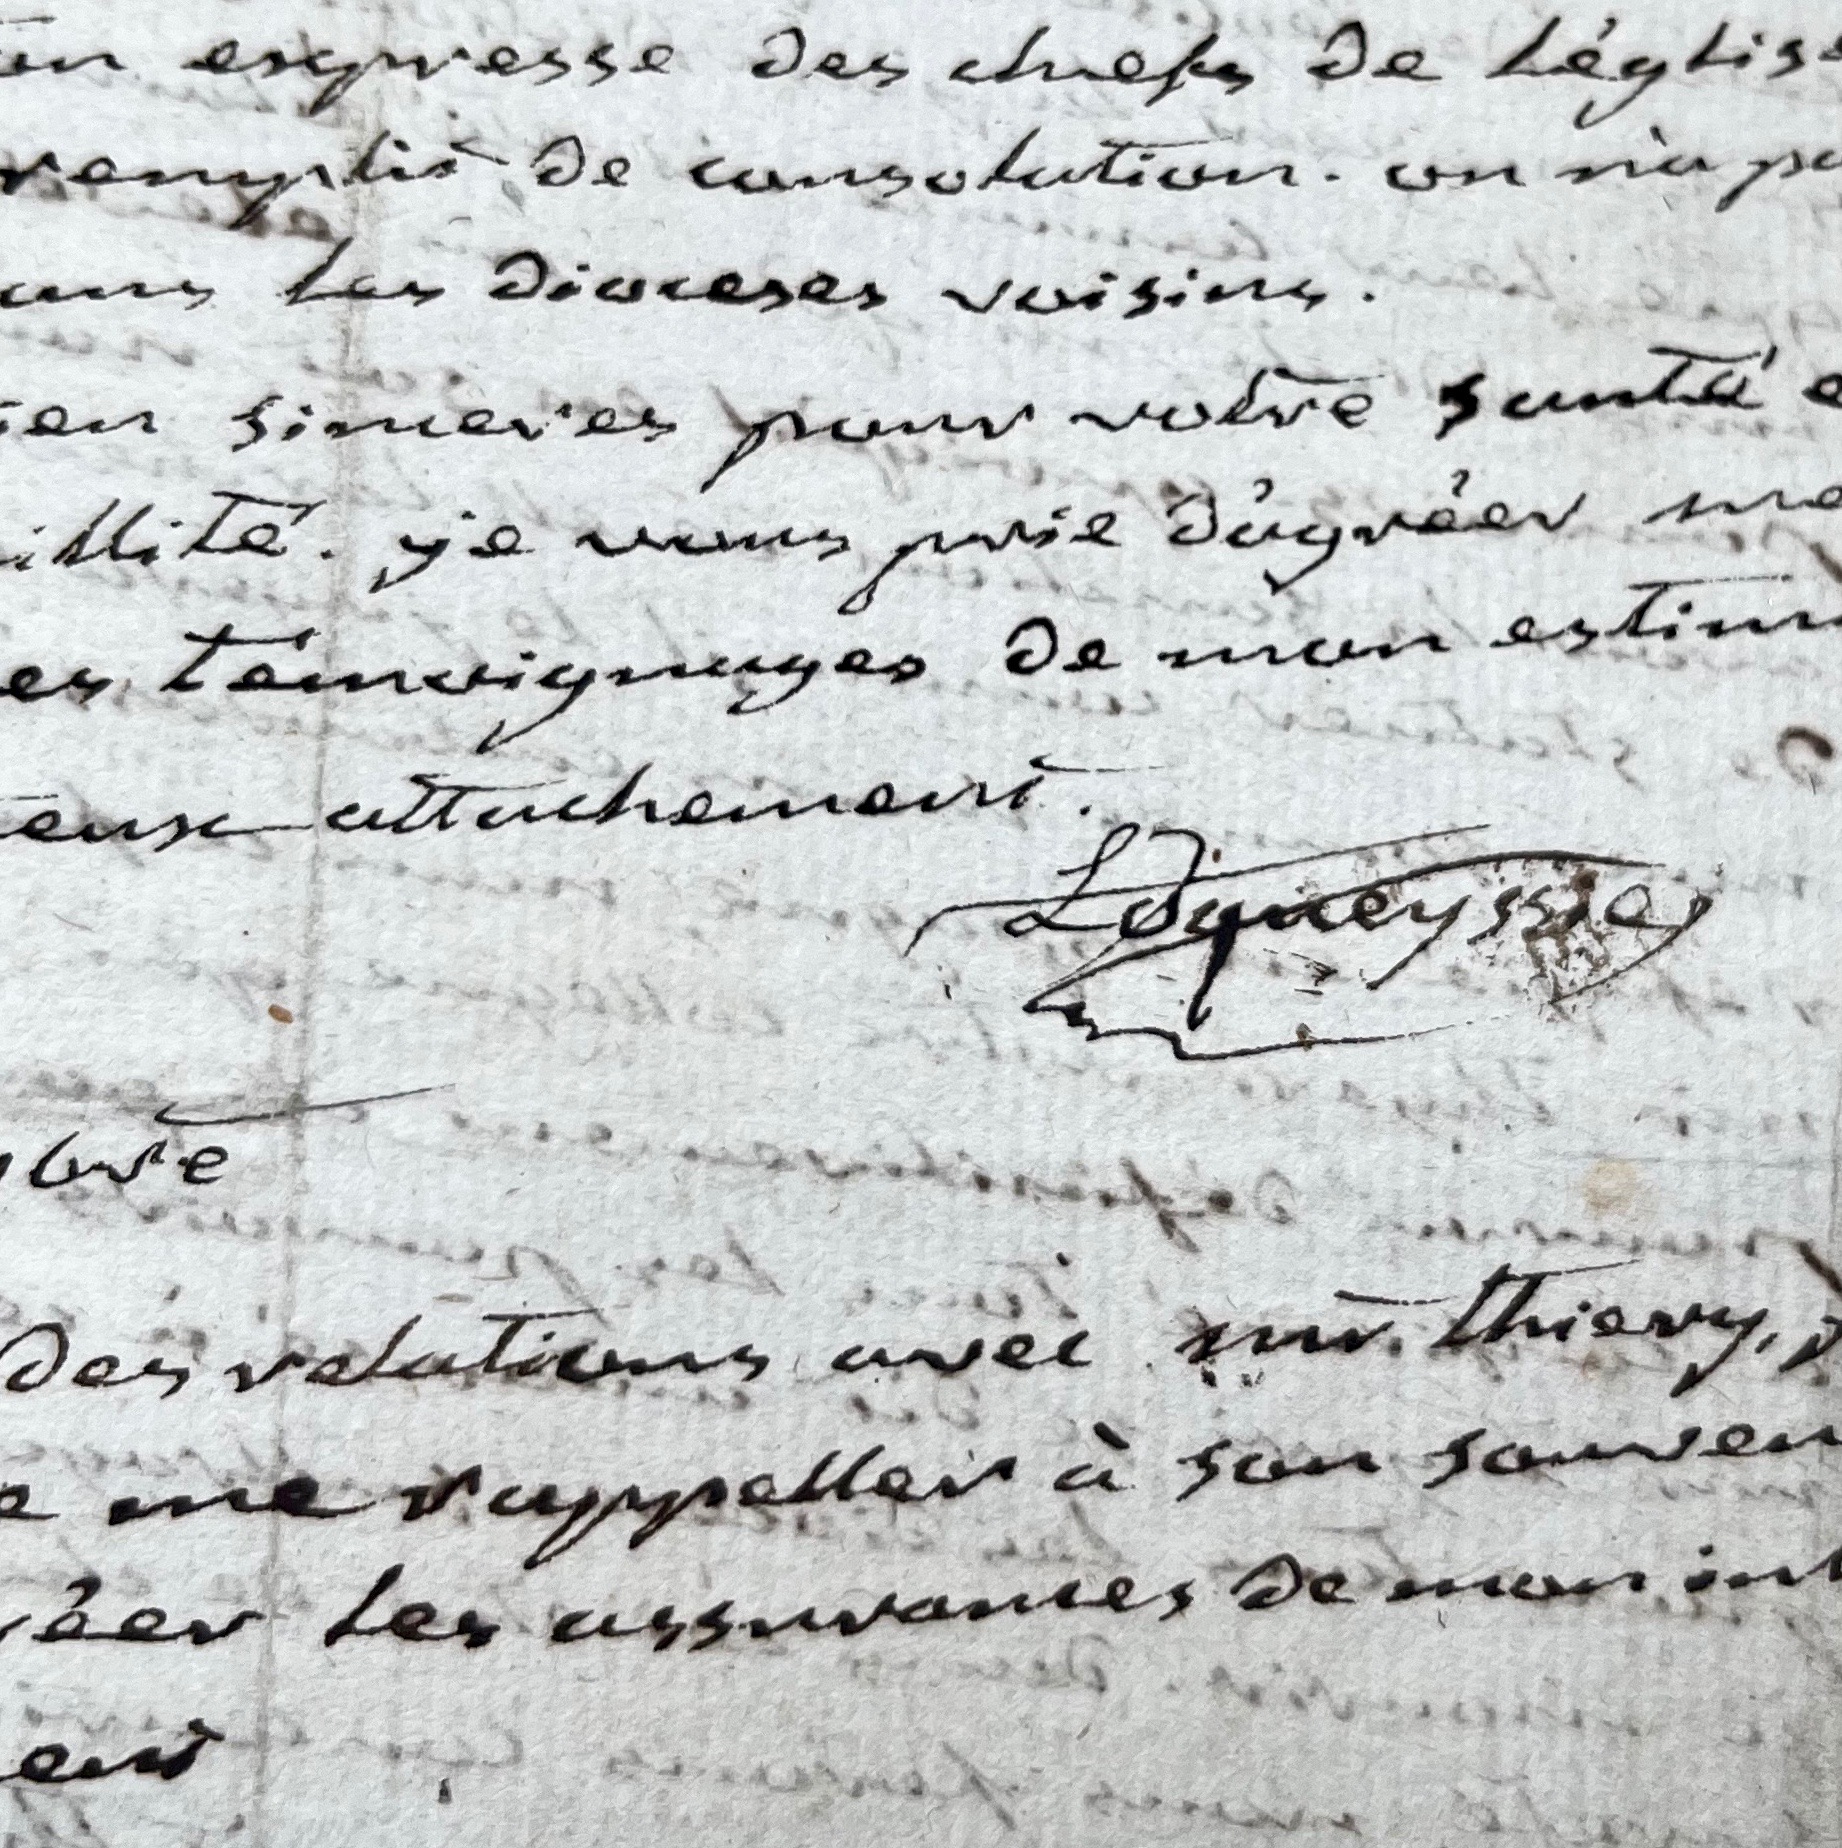 on expresse des chefs de l'église
remplit de consolution. on n'a pa
ans les dioceses voisins.
ien sinceres pour votre santé e
illité. je vous prie d'agréer me
es témoignages de mon estime
eux attachement.
Logneyssie
bre
Des relations avec mr. thiery,
e me rappeller à son souven
éer les assurances de mon int
ent